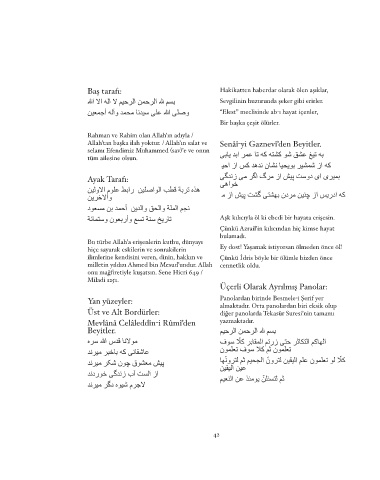 Baş tarafı:
بسم الله الرحمن الرحيم لا اله الا الله
وصلى الله على سيدنا محمد وآله أجمعين
Rahman ve Rahim olan Allah'ın adıyla /
Allah'tan başka ilah yoktur. / Allah'ın salat ve
selamı Efendimiz Muhammed (sav)'e ve onun
tüm ailesine olsun.
Ayak Tarafı:
هذه تربة قطب الواصلين رابط علوم الاولين
والآخرين
نجم الملة والحق والدين أحمد بن مسعود
تاريخ سنة تسع وأربعون وستمائة
Bu türbe Allah'a erişenlerin kutbu, dünyayı
hiçe sayarak eskilerin ve sonrakilerin
ilimlerine kendisini veren, dinin, hakkın ve
milletin yıldızı Ahmed bin Mesud'undur. Allah
onu mağfiretiyle kuşatsın. Sene Hicri 649 /
Miladi 1251.
Yan yüzeyler:
Üst ve Alt Bordürler:
Mevlânâ Celâleddin-i Rûmî'den
Beyitler.
مولانا قدس الله سره
عاشقانى كه باخبر ميرند
پيش معشوق چون شكر ميرند
از الست آب زندگى خوردند
لاجرم شيوه دگر ميرند
Hakikatten haberdar olarak ölen aşıklar,
Sevgilinin huzurunda şeker gibi erirler.
"Elest" meclisinde ab-ı hayat içenler,
Bir başka çeşit ölürler.
Senâî-yi Gaznevî'den Beyitler.
به تيغ عشق شو كشته كه تا عمر ابد يابى
كه از شمشير بويحيا نشان ندهد كس از احيا
بميرى اى دوست پيش از مرگ اگر مى زندگى
خواهى
كه ادريس از چنين مردن بهشتى گشت پيش از ما
Aşk kılıcıyla öl ki ebedi bir hayata erişesin.
Çünkü Azrail'in kılıcından hiç kimse hayat
bulamadı.
Ey dost! Yaşamak istiyorsan ölmeden önce öl!
Çünkü İdris böyle bir ölümle bizden önce
cennetlik oldu.
Üçerli Olarak Ayrılmış Panolar:
Panolardan birinde Besmele-i Şerif yer
almaktadır. Orta panolardan biri eksik olup
diğer panolarda Tekasür Suresi'nin tamamı
yazmaktadır.
بسم الله الرحمن الرحيم
الهاكم التكاثر حتى زرتم المقابر كلا سوف
تعلمون ثم كلا سوف تعلمون
كلا لو تعلمون علم اليقين لترون الجحيم ثم لترونها
عين اليقين
ثم لتسئلن يومئذ عن النعيم
42